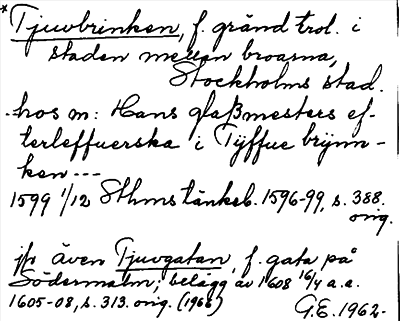 * Tjuvbrinken, f. gränd trol. i
staden mellan broarna,
Stockholms stad.
hos m: Hans glaßmesters ef-
terleffuerska i Tÿffue brÿnn-
ken ---
1599 1/12 Sthms tänkeb. 1596-99, s. 388.
orig.
jfr även Tjuvgatan, f. gata på
Södermalm; belägg av 1608 16/4 a.a.
1605-08, s. 313. orig. (1966)
G.E. 1962.